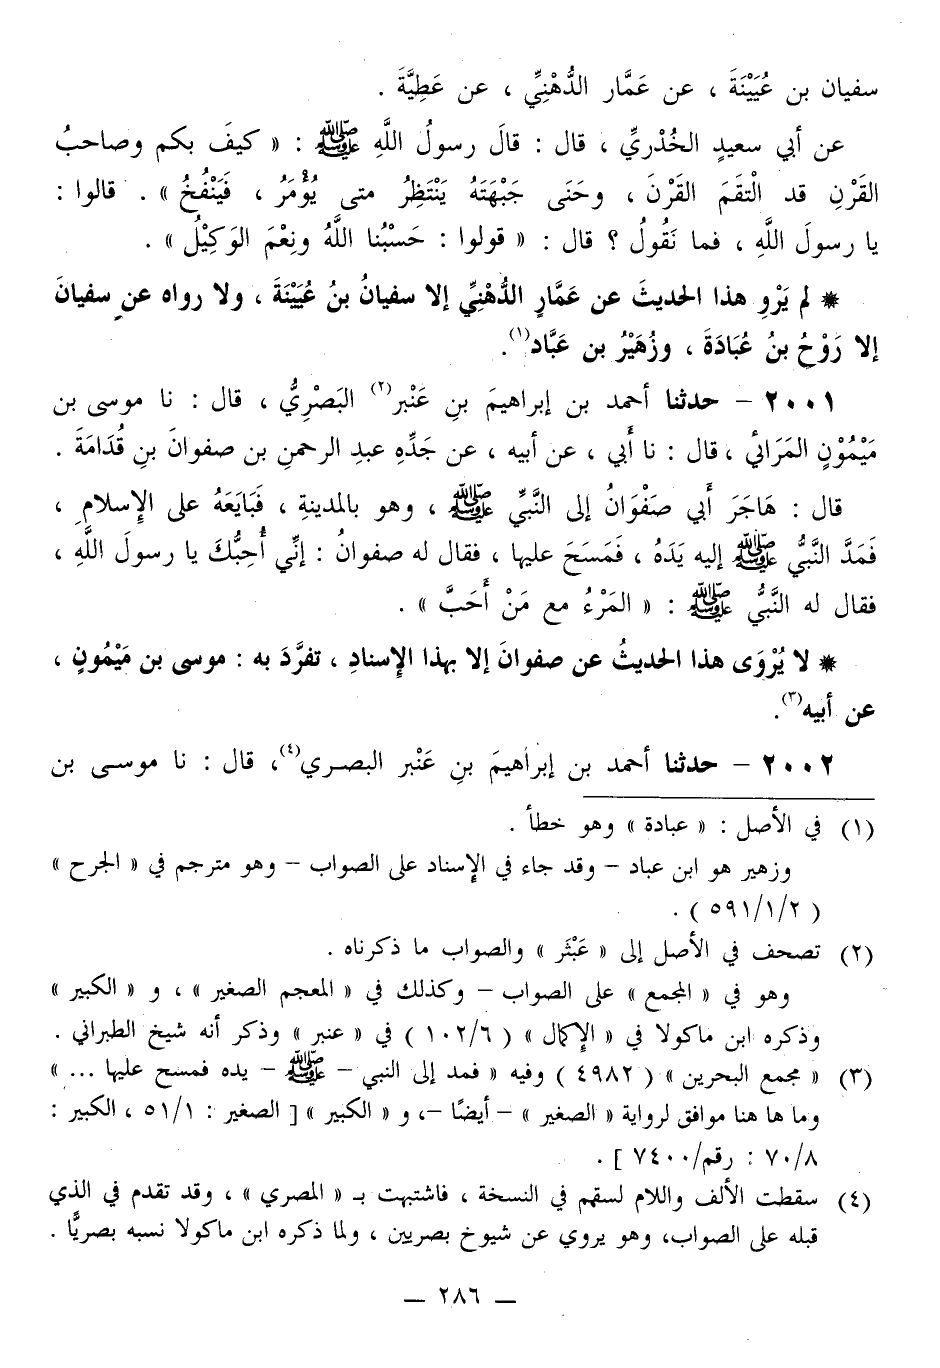 سفيان بن عُيَيْنَةَ ، عن عَمَّار الدُّهْنِيِّ ، عن عَطِيَّةَ .
عن أبي سعيدٍ الخُدْريِّ ، قال : قالَ رسولُ اللَّهِ ﷺ : « كيفَ بكم وصاحبُ
القَرْنِ قد الْتقَمَ القَرْنَ ، وحَنَى جَبْهَتَهُ يَنْتَظِرُ متى يُؤْمَرُ ، فَيَنْفُخُ » . قالوا :
يا رسولَ اللَّهِ ، فما نَقُولُ ؟ قال : « قولوا : حَسْبُنا اللَّهُ ونِعْمَ الوَكِيْلُ » .
* لم يَرْوِ هذا الحديثَ عن عَمَّارٍ الدُّهْنِيِّ إلا سفيانُ بنُ عُيَيْنَةَ ، ولا رواه عن سفيانَ
إلا رَوْحُ بنُ عُبَادَةَ ، وزُهَيْرُ بن عَبَّاد(١).
٢٠٠١ – حدثنا أحمد بن إبراهيمَ بنِ عَنْبر(٢) البَصْرِيُّ ، قال : نا موسى بن
مَيْمُوْنٍ المَرَائي ، قال : نا أَبي ، عن أبيه ، عن جَدِّهِ عبدِ الرحمنِ بن صفوانَ بنِ قُدَامَةَ .
قال : هَاجَرَ أَبي صَفْوَانُ إلى النَّبيِّ ﷺ ، وهو بالمدينةِ ، فَبَايَعَهُ على الإِسلامِ ،
فَمَدَّ النَّبيُّ ﷺ إليه يَدَهُ ، فَمَسَحَ عليها ، فقال له صفوانُ : إنِّي أُحِبُّكَ يا رسولَ اللَّهِ ،
فقال له النَّبيُّ ﷺ : « المَرْءُ مع مَنْ أَحَبَّ » .
* لا يُرْوَى هذا الحديثُ عن صفوانَ إلا بهذا الإِسنادِ ، تفرَّدَ به : موسى بن مَيْمُونٍ ،
عن أبيه(٣).
٢٠٠٢ – حدثنا أحمد بن إبراهيمَ بنِ عَنْبر البصري(٤)، قال : نا موسى بن
(١) في الأصل : « عبادة » وهو خطأ .
وزهير هو ابن عباد – وقد جاء في الإسناد على الصواب – وهو مترجم في « الجرح »
( ٥٩١/١/٢ ) .
(٢) تصحف في الأصل إلى « عَبْثَر » والصواب ما ذكرناه .
وهو في « المجمع » على الصواب – وكذلك في « المعجم الصغير » ، و « الكبير »
وذكره ابن ماكولا في « الإكمال » ( ١٠٢/٦ ) في « عنبر » وذكر أنه شيخ الطبراني .
(٣) « مجمع البحرين » ( ٤٩٨٢ ) وفيه « فمد إلى النبي – ﷺ – يده فمسح عليها ... »
وما ها هنا موافق لرواية « الصغير » – أيضًا –، و « الكبير » [ الصغير : ٥١/١ ، الكبير :
٧٠/٨ : رقم/٧٤٠٠ ] .
(٤) سقطت الألف واللام لسقم في النسخة ، فاشتبهت بـ « المصري » ، وقد تقدم في الذي
قبله على الصواب، وهو يروي عن شيوخ بصريين ، ولما ذكره ابن ماكولا نسبه بصريًّا .
— ٢٨٦ —